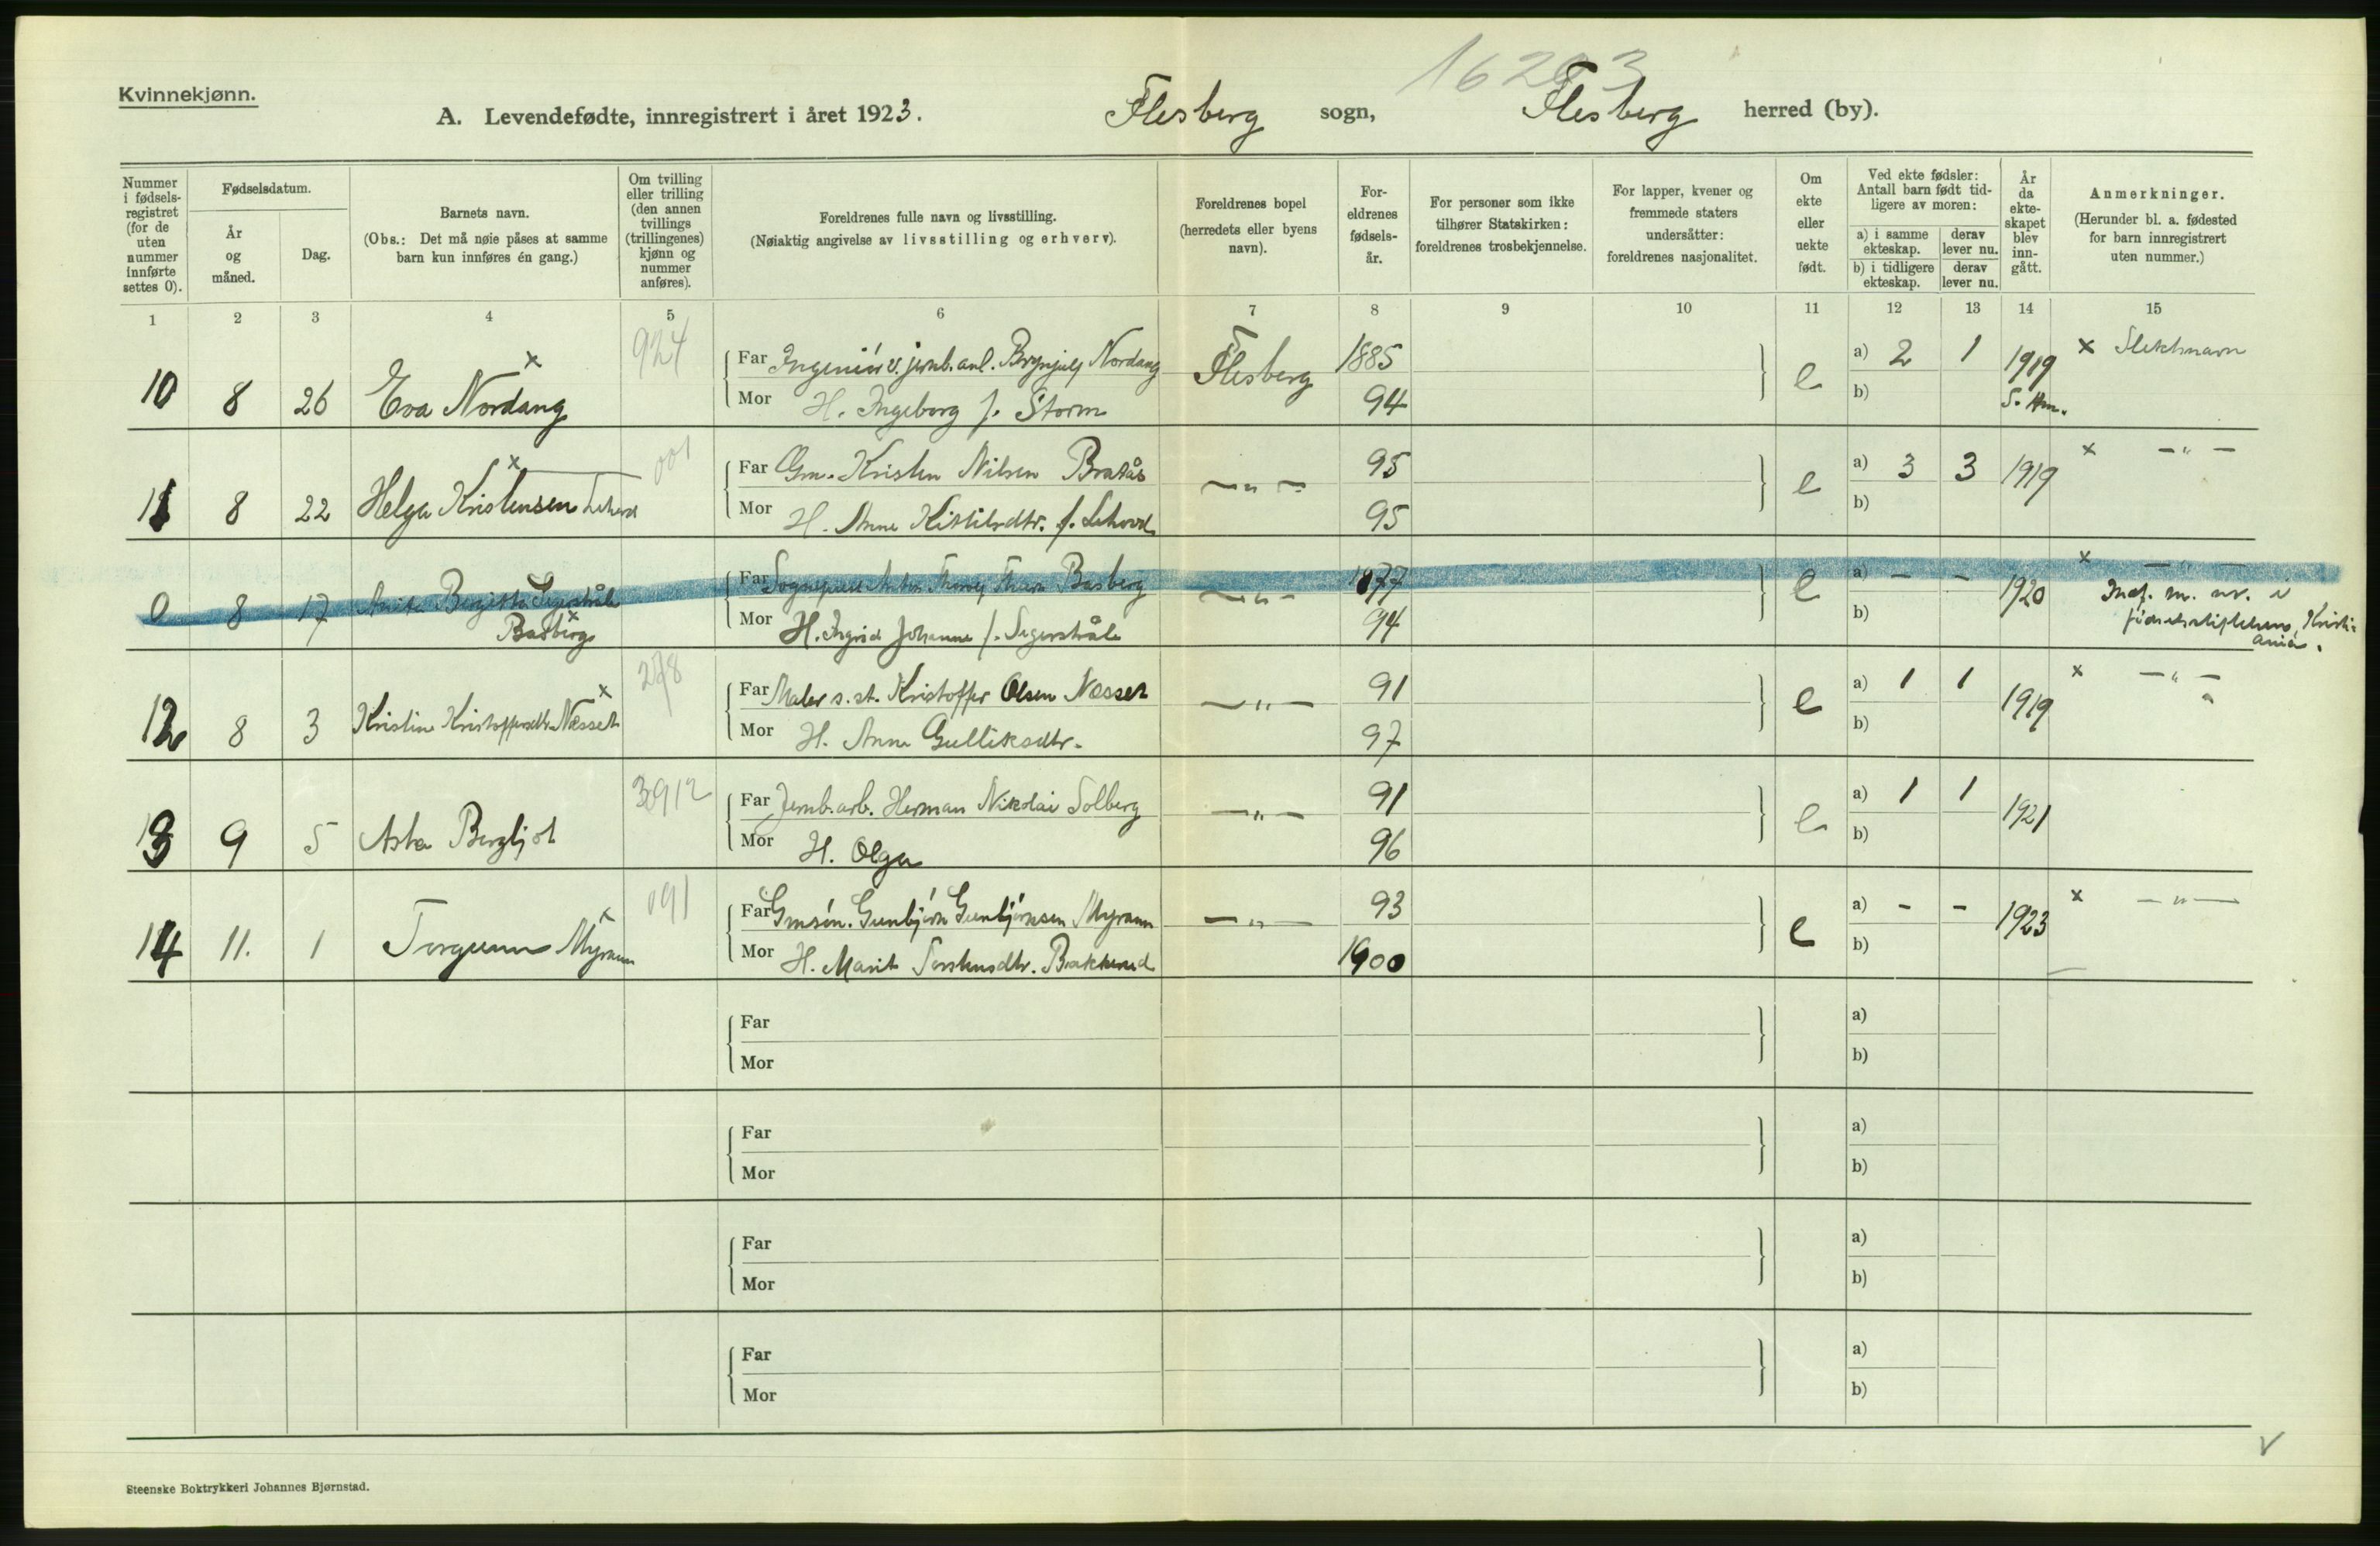 16283
Kvinnekjønn.
A. Levendefødte, innregistrert i året 1923. Flesberg sogn, Flesberg herred (by).
Nummer i fødselsregistret (for de uten nummer innførte settes 0).
Fødselsdatum.
År og måned.
Dag.
Barnets navn.
(Obs.: Det må nøie påses at samme barn kun innføres én gang.)
Om tvilling eller trilling (den annen tvillings (trillingenes) kjønn og nummer anføres).
Foreldrenes fulle navn og livsstilling.
(Nøiaktig angivelse av livsstilling og erhverv).
Foreldrenes bopel (herredets eller byens navn).
Foreldrenes fødselsår.
For personer som ikke tilhører Statskirken: foreldrenes trosbekjennelse.
For lapper, kvener og fremmede staters undersåtter: foreldrenes nasjonalitet.
Om ekte eller uekte født.
Ved ekte fødsler: Antall barn født tidligere av moren:
a) i samme ekteskap.
derav lever nu.
b) i tidligere ekteskap.
derav lever nu.
År da ekteskapet blev inngått.
Anmerkninger.
(Herunder bl. a. fødested for barn innregistrert uten nummer.)
1 2 3 4 5 6 7 8 9 10 11 12 13 14 15
924
Far Ingeniör v. jernb. anl. Brynjulf Nordang Flesberg 1885 a) 2 1 1919 x Slektsnavn
10 8 26 Eva Nordang x e
Mor H. Ingeborg f. Storm 94 b) S.
001
Far Gm. Kristen Nilsen Brakås — " — 95 a) 3 3 1919 x — " —
11 8 22 Helga Kristensen x e
Mor H. Anne Kittilsdtr. f. Lehovd 95 b)
Far Sogneprest Basberg — " — 1877 a) - - 1920 x — " —
0 8 17 Anita Birgitta Segerstråle Basberg x e
Mor H. Ingrid Johanne f. Segerstråle 94 b)
Indf. m. nr. i
födselsstiftelsen, Kristiania.
278
Far Maler s. st. Kristoffer Olsen Næsset — " — 91 a) 1 1 1919 x — " —
12 8 3 Kristine Kristoffersdtr. Næsset x e
Mor H. Anne Gulliksdtr. 97 b)
3912
Far Jernb. arb. Herman Nikolai Solberg — " — 91 a) 1 1 1921
13 9 5 Asta Bergljot e
Mor H. Olga 96 b)
091
Far Gmsön. Gunbjörn Gunbjörnsen Myrann — " — 93 a) - - 1923 x — " —
14 11. 1 Torgunn Myrann x e
Mor H. Marit Torstensdtr. Bakkerud 1900 b)
Far a)
Mor b)
Far a)
Mor b)
Far a)
Mor b)
Far a)
Mor b)
Steenske Boktrykkeri Johannes Bjørnstad.